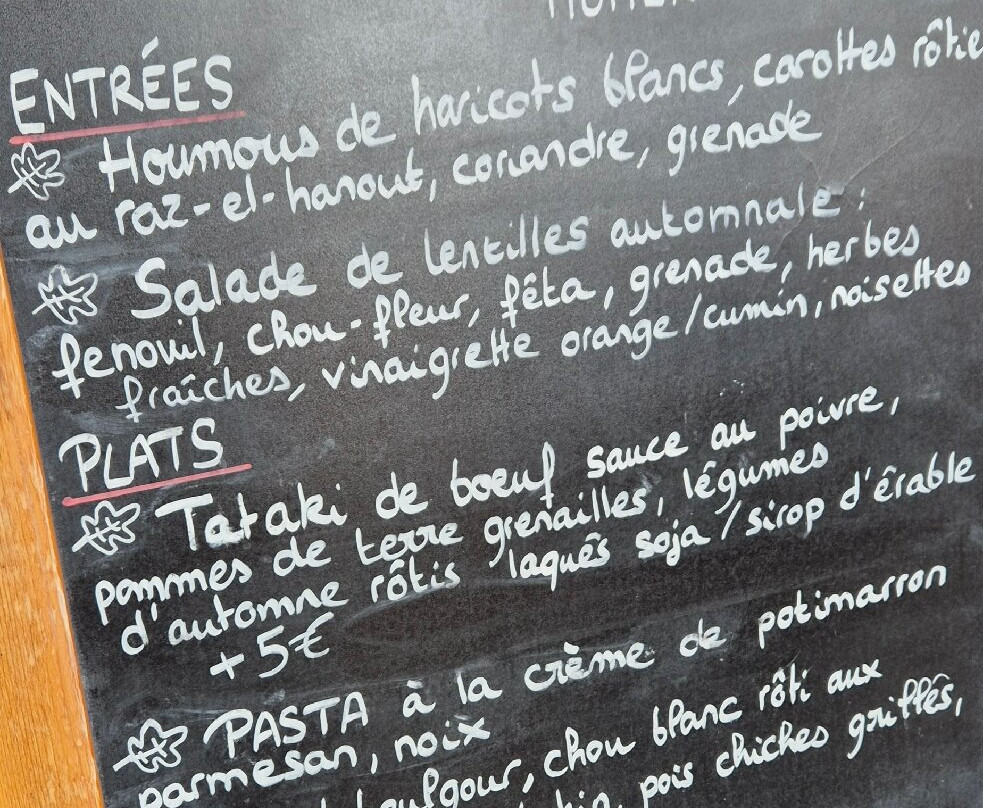 ENTRÉES
Houmous de haricots blancs, carottes rôtie
au raz-el-hanout, coriandre, grenade
Salade de lentilles automnale :
fenouil, chou-fleur, fêta, grenade, herbes
fraîches, vinaigrette orange/cumin, noisettes
PLATS
Tataki de boeuf sauce au poivre,
pommes de terre grenailles, légumes
d'automne rôtis laqués soja/sirop d'érable
+5€
PASTA à la crème de potimarron
parmesan, noix
chou blanc rôti aux
pois chiches grillés,